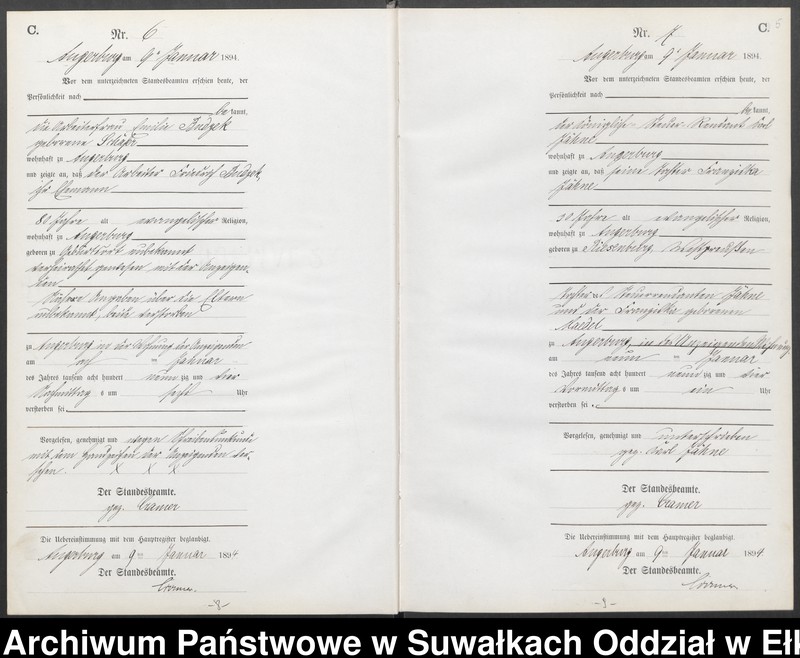 C.
Nr. 6
Angerburg am 9t Januar 1894.
Vor dem unterzeichneten Standesbeamten erschien heute, der
Persönlichkeit nach
be kannt,
die Arbeiterfrau Emilie Budzek
geborene
wohnhaft zu Angerburg
und zeigte an, daß der Arbeiter Friedrich Budzek,
ihr Ehemann
80 Jahre alt evangelischer Religion,
wohnhaft zu Angerburg
geboren zu Geburtsort unbekannt
verheirathet gewesen mit der Anzeigen-
den
Nähere Angaben über die Eltern
unbekannt, beide verstorben
zu Angerburg in der Wohnung der Anzeigenden
am acht ten Januar
des Jahres tausend acht hundert neun zig und vier
Nachmittags um Uhr
verstorben sei
Vorgelesen, genehmigt und wegen Schreibensunkunde
mit dem Handzeichen der Anzeigenden ver-
sehen. X X X
Der Standesbeamte.
gez. Cramer
Die Uebereinstimmung mit dem Hauptregister beglaubigt.
Angerburg am 9ten Januar 1894
Der Standesbeamte.
Cramer.
-8-
C.
Nr. 7
Angerburg am 9t Januar 1894.
Vor dem unterzeichneten Standesbeamten erschien heute, der
Persönlichkeit nach
be kannt,
der Königliche Steuer-Rendant Carl
Jähne
wohnhaft zu Angerburg
und zeigte an, daß seine Tochter Franziska
Jähne
30 Jahre alt evangelischer Religion,
wohnhaft zu Angerburg
geboren zu Riesenberg, Westpreußen
Tochter des Steuerrendanten Jähne
und der Franziska geborenen
zu Angerburg, in des Anzeigenden Wohnung
am neun ten Januar
des Jahres tausend acht hundert neun zig und vier
Vormittags um ein Uhr
verstorben sei.
Vorgelesen, genehmigt und unterschrieben
gez. Carl Jähne
Der Standesbeamte.
gez. Cramer
Die Uebereinstimmung mit dem Hauptregister beglaubigt.
Angerburg am 9ten Januar 1894
Der Standesbeamte.
Cramer
-9-
Archiwum Państwowe w Suwałkach Oddział w Ełk